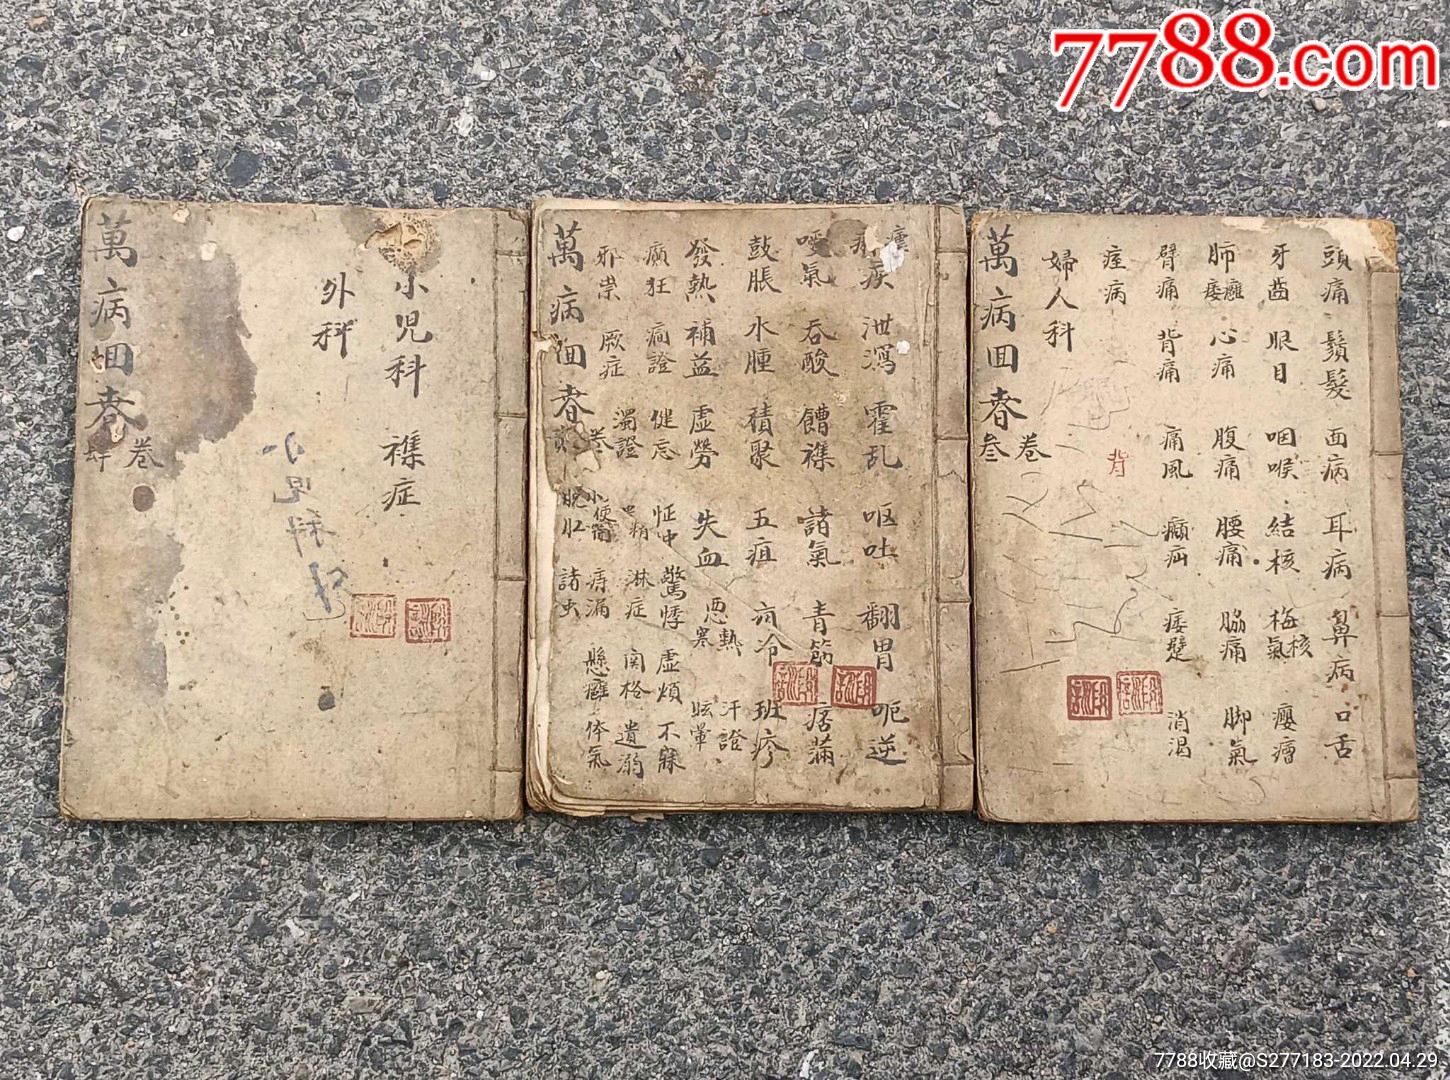 7788.com
頭痛 鬚髮 面病 耳病 鼻病 口舌
牙齒 眼目 咽喉 結核 梅核氣 癭瘤
肺癰 痿 心痛 腹痛 腰痛 脇痛 脚氣
臂痛 背痛 痛風 癲疝 痿躄 消渴
痓病 背
婦人科
萬病回春
卷叁
泄瀉 霍乱 呕吐 翻胃 呃逆
噯氣 吞酸 饐襍 諸氣 青筋 痞滿
鼓脹 水腫 積聚 五疸 痼冷 班疹
發熱 補益 虛勞 失血 惡寒 熱 眩暈 汗證
癲狂 癎證 健忘 怔忡 驚悸 虛煩 不寐
邪祟 厥症 濁證 淋症 関格 遺溺
小便 痔漏 懸癰 体氣
脫肛 諸虫
萬病回春
卷貳
小児科 襍症
外科
小児科
萬病回春
卷肆
7788收藏@S277183-2022.04.29